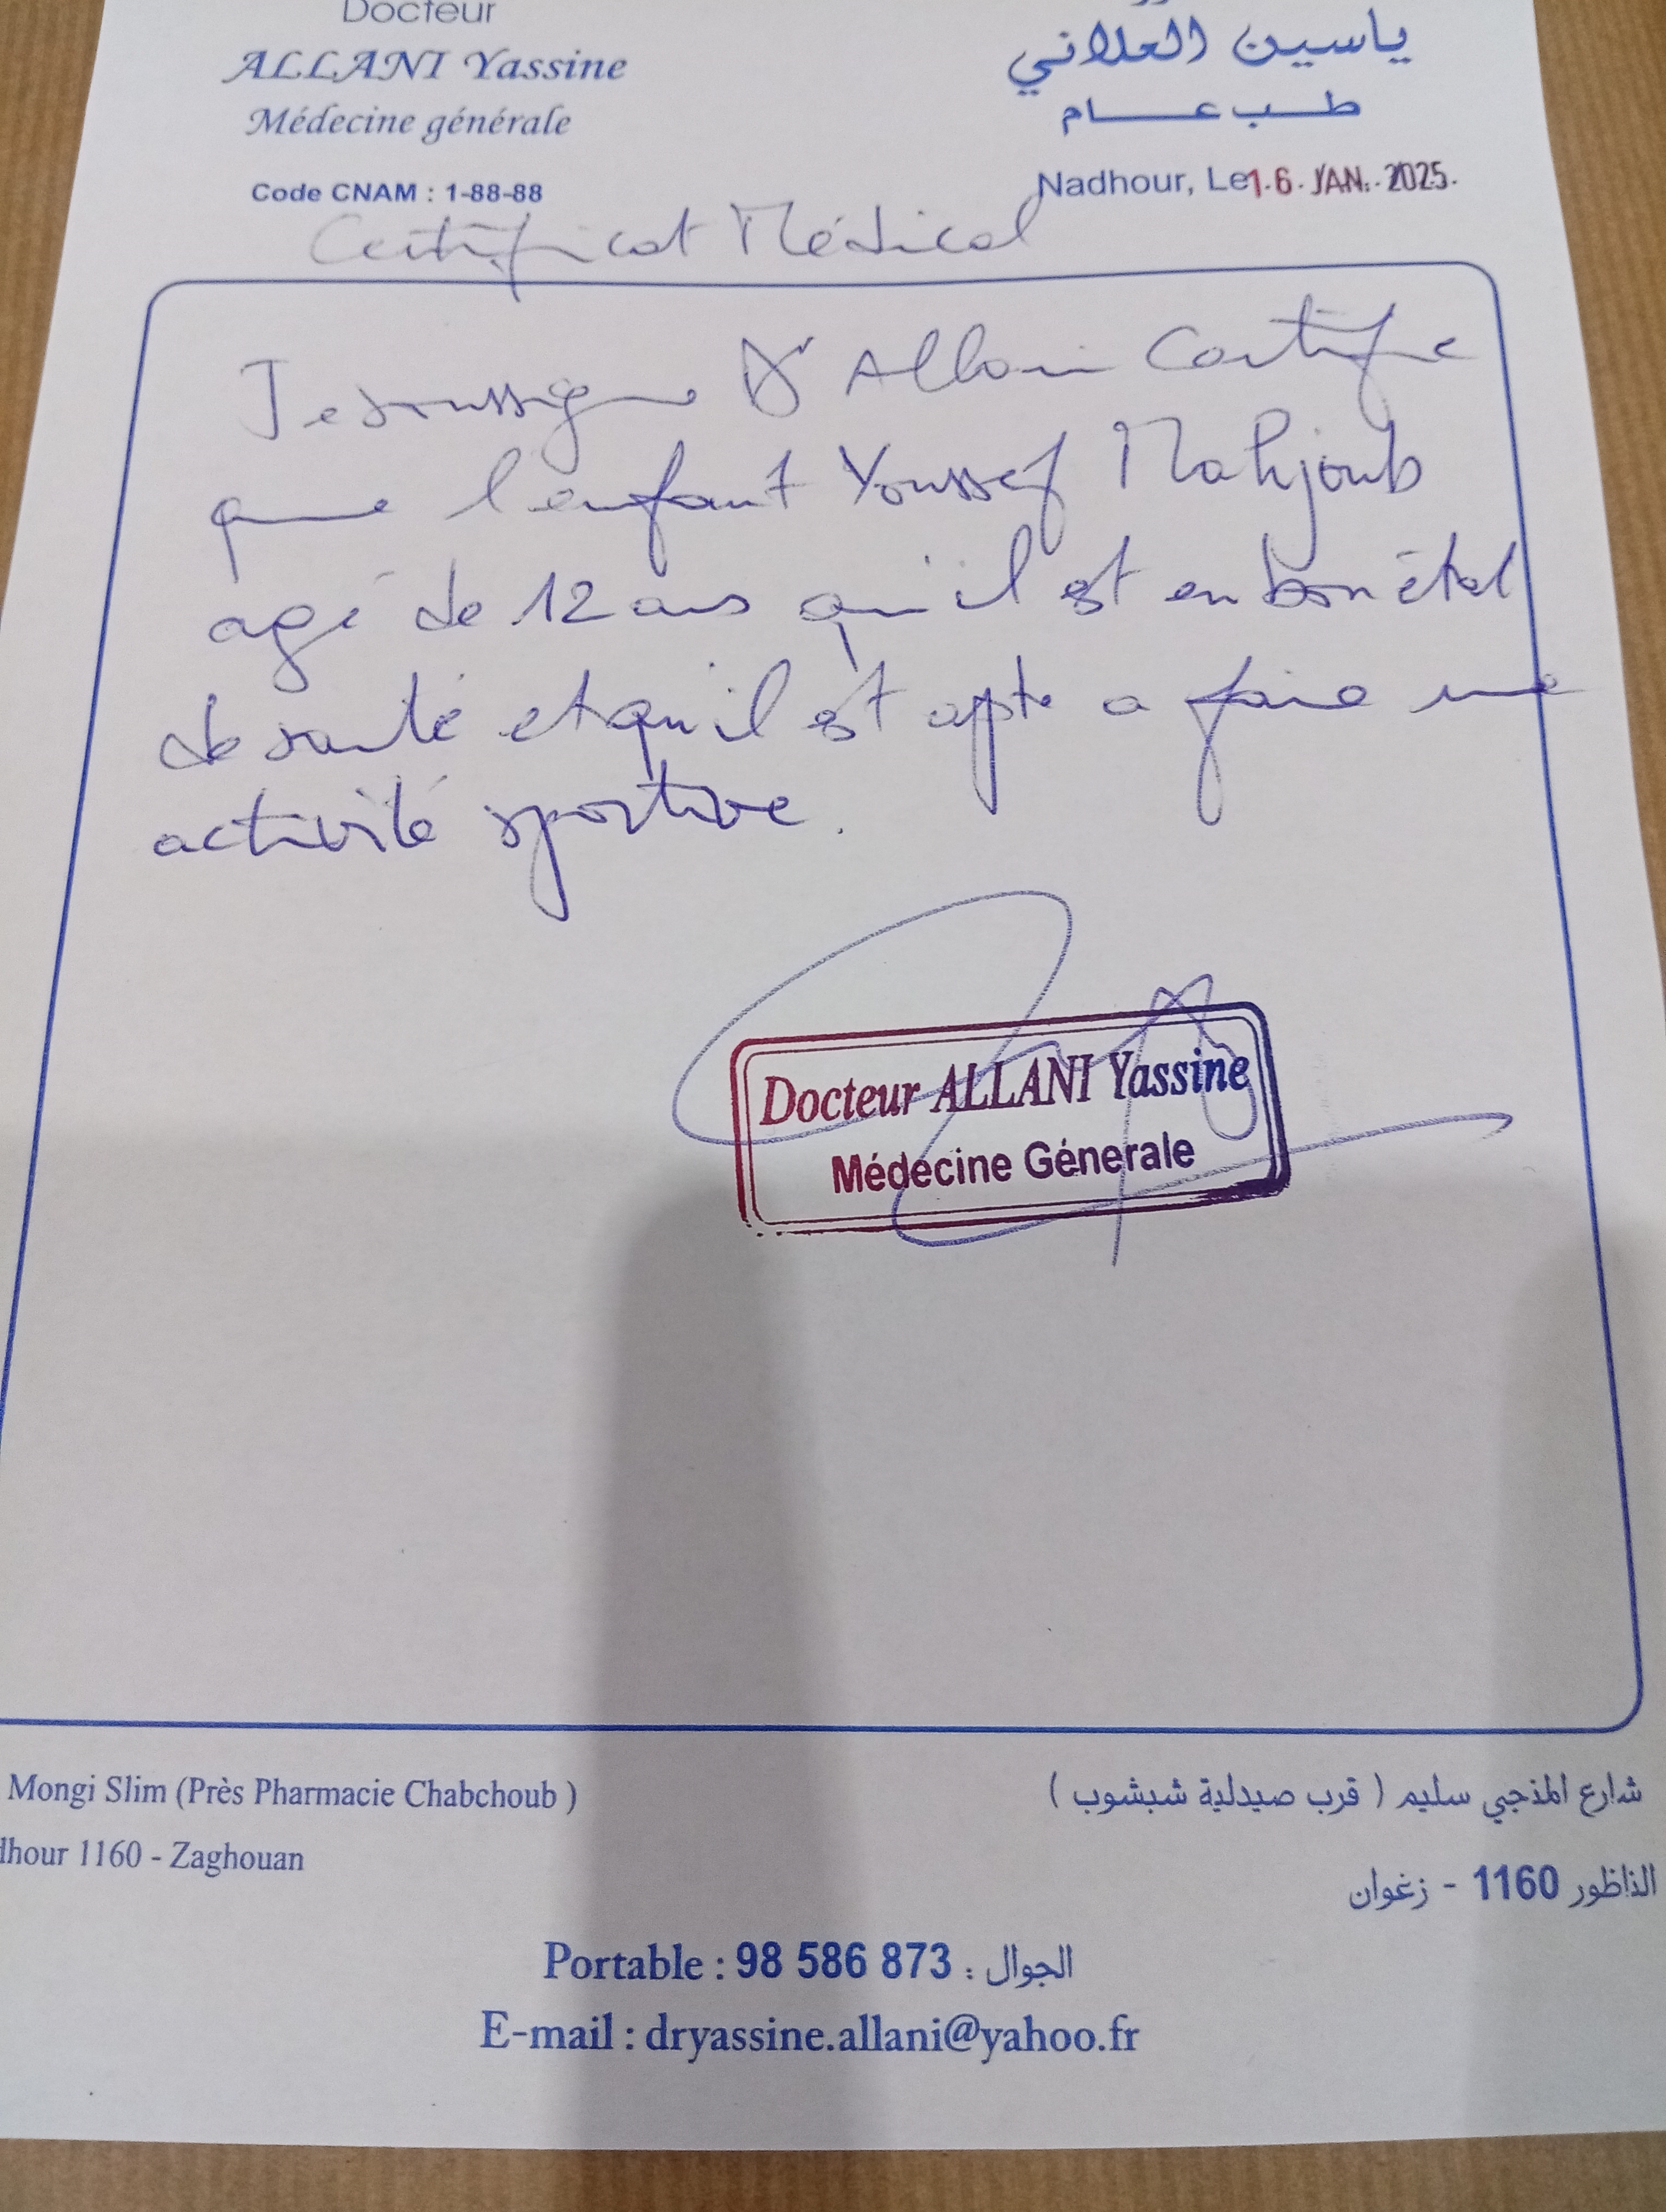 Docteur
ALLANI Yassine
Médecine générale
Code CNAM : 1-88-88
ياسين العلاني
طب عام
Nadhour, Le 16 JAN. 2025
Certificat Médical
Je soussigne Dr Allani Certifie
que l'enfant Youssef Mahjoub
agé de 12 ans qu'il est en bon état
de santé et qu'il est apte a faire une
activité sportive.
Docteur ALLANI Yassine
Médecine Génerale
Mongi Slim (Près Pharmacie Chabchoub )
dhour 1160 - Zaghouan
شارع المنجي سليم ( قرب صيدلية شبشوب )
الناظور 1160 - زغوان
Portable : 98 586 873 : الجوال
E-mail : dryassine.allani@yahoo.fr